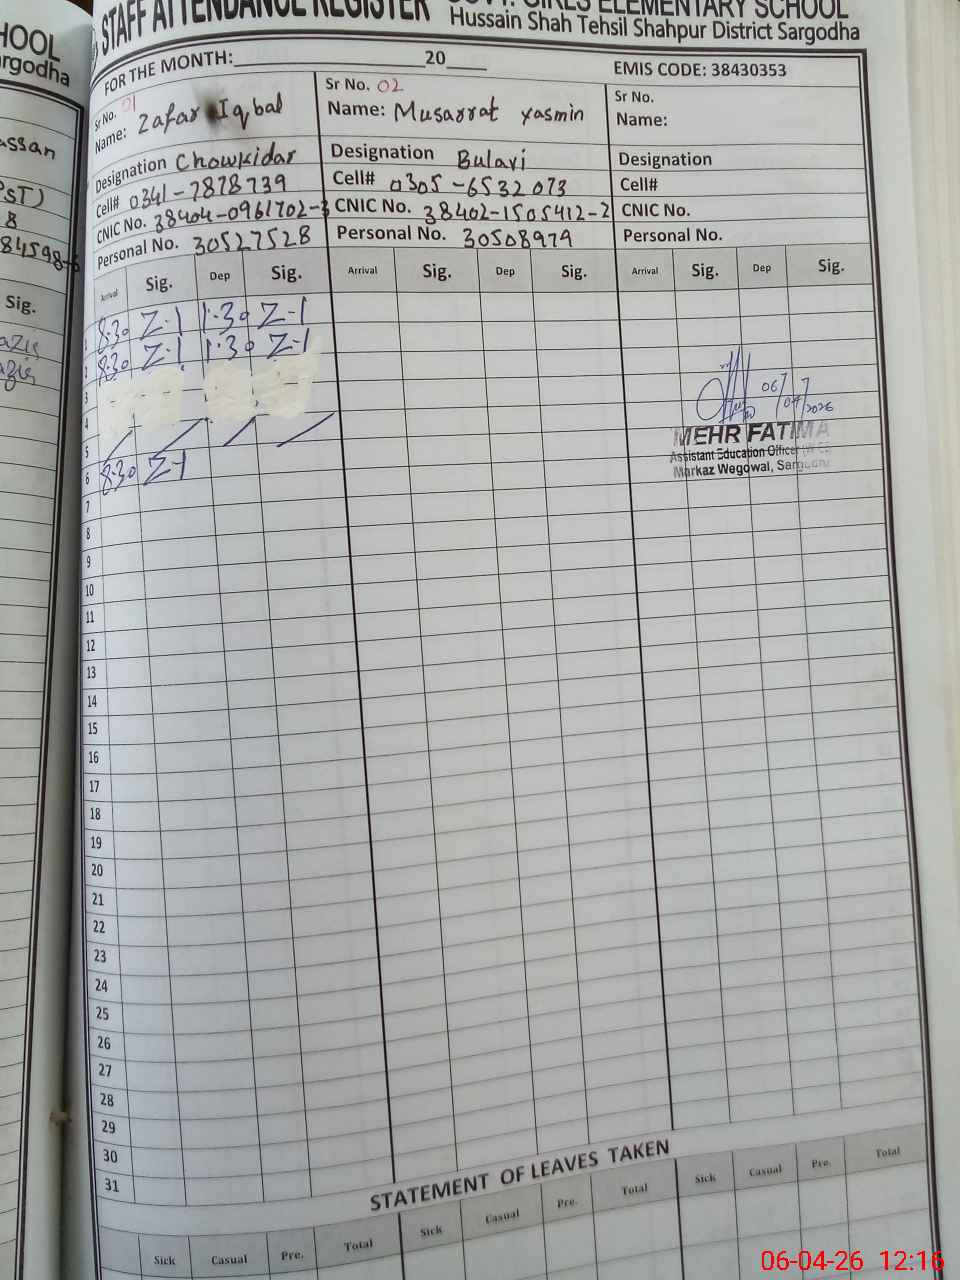 HOOL
argodha
assan
PST)
8
84598-
Sig.
azis
azis
STAFF ATTENDANCE REGISTER GOVT. GIRLS ELEMENTARY SCHOOL
Hussain Shah Tehsil Shahpur District Sargodha
FOR THE MONTH:____________20____ EMIS CODE: 38430353
Sr No. 01 Sr No. 02 Sr No.
Name: Zafar Iqbal Name: Musarrat yasmin Name:
Designation Chowkidar Designation Bulavi Designation
Cell# 0341-7878739 Cell# 0305-6532073 Cell#
CNIC No. 38404-0961702-3 CNIC No. 38402-1505412-2 CNIC No.
Personal No. 30527528 Personal No. 30508979 Personal No.
Arrival Sig. Dep Sig. Arrival Sig. Dep Sig. Arrival Sig. Dep Sig.
1 8:30 Z-1 1:30 Z-1
2 8:30 Z-1 1:30 Z-1
3
4
5
6 8:30 Z-1
06/04/2026
MEHR FATIMA
Assistant Education Officer
Markaz Wegowal, Sargodha
7
8
9
10
11
12
13
14
15
16
17
18
19
20
21
22
23
24
25
26
27
28
29
30
31
STATEMENT OF LEAVES TAKEN
Sick Casual Pre. Total Sick Casual Pre. Total Sick Casual Pre. Total
06-04-26 12:16